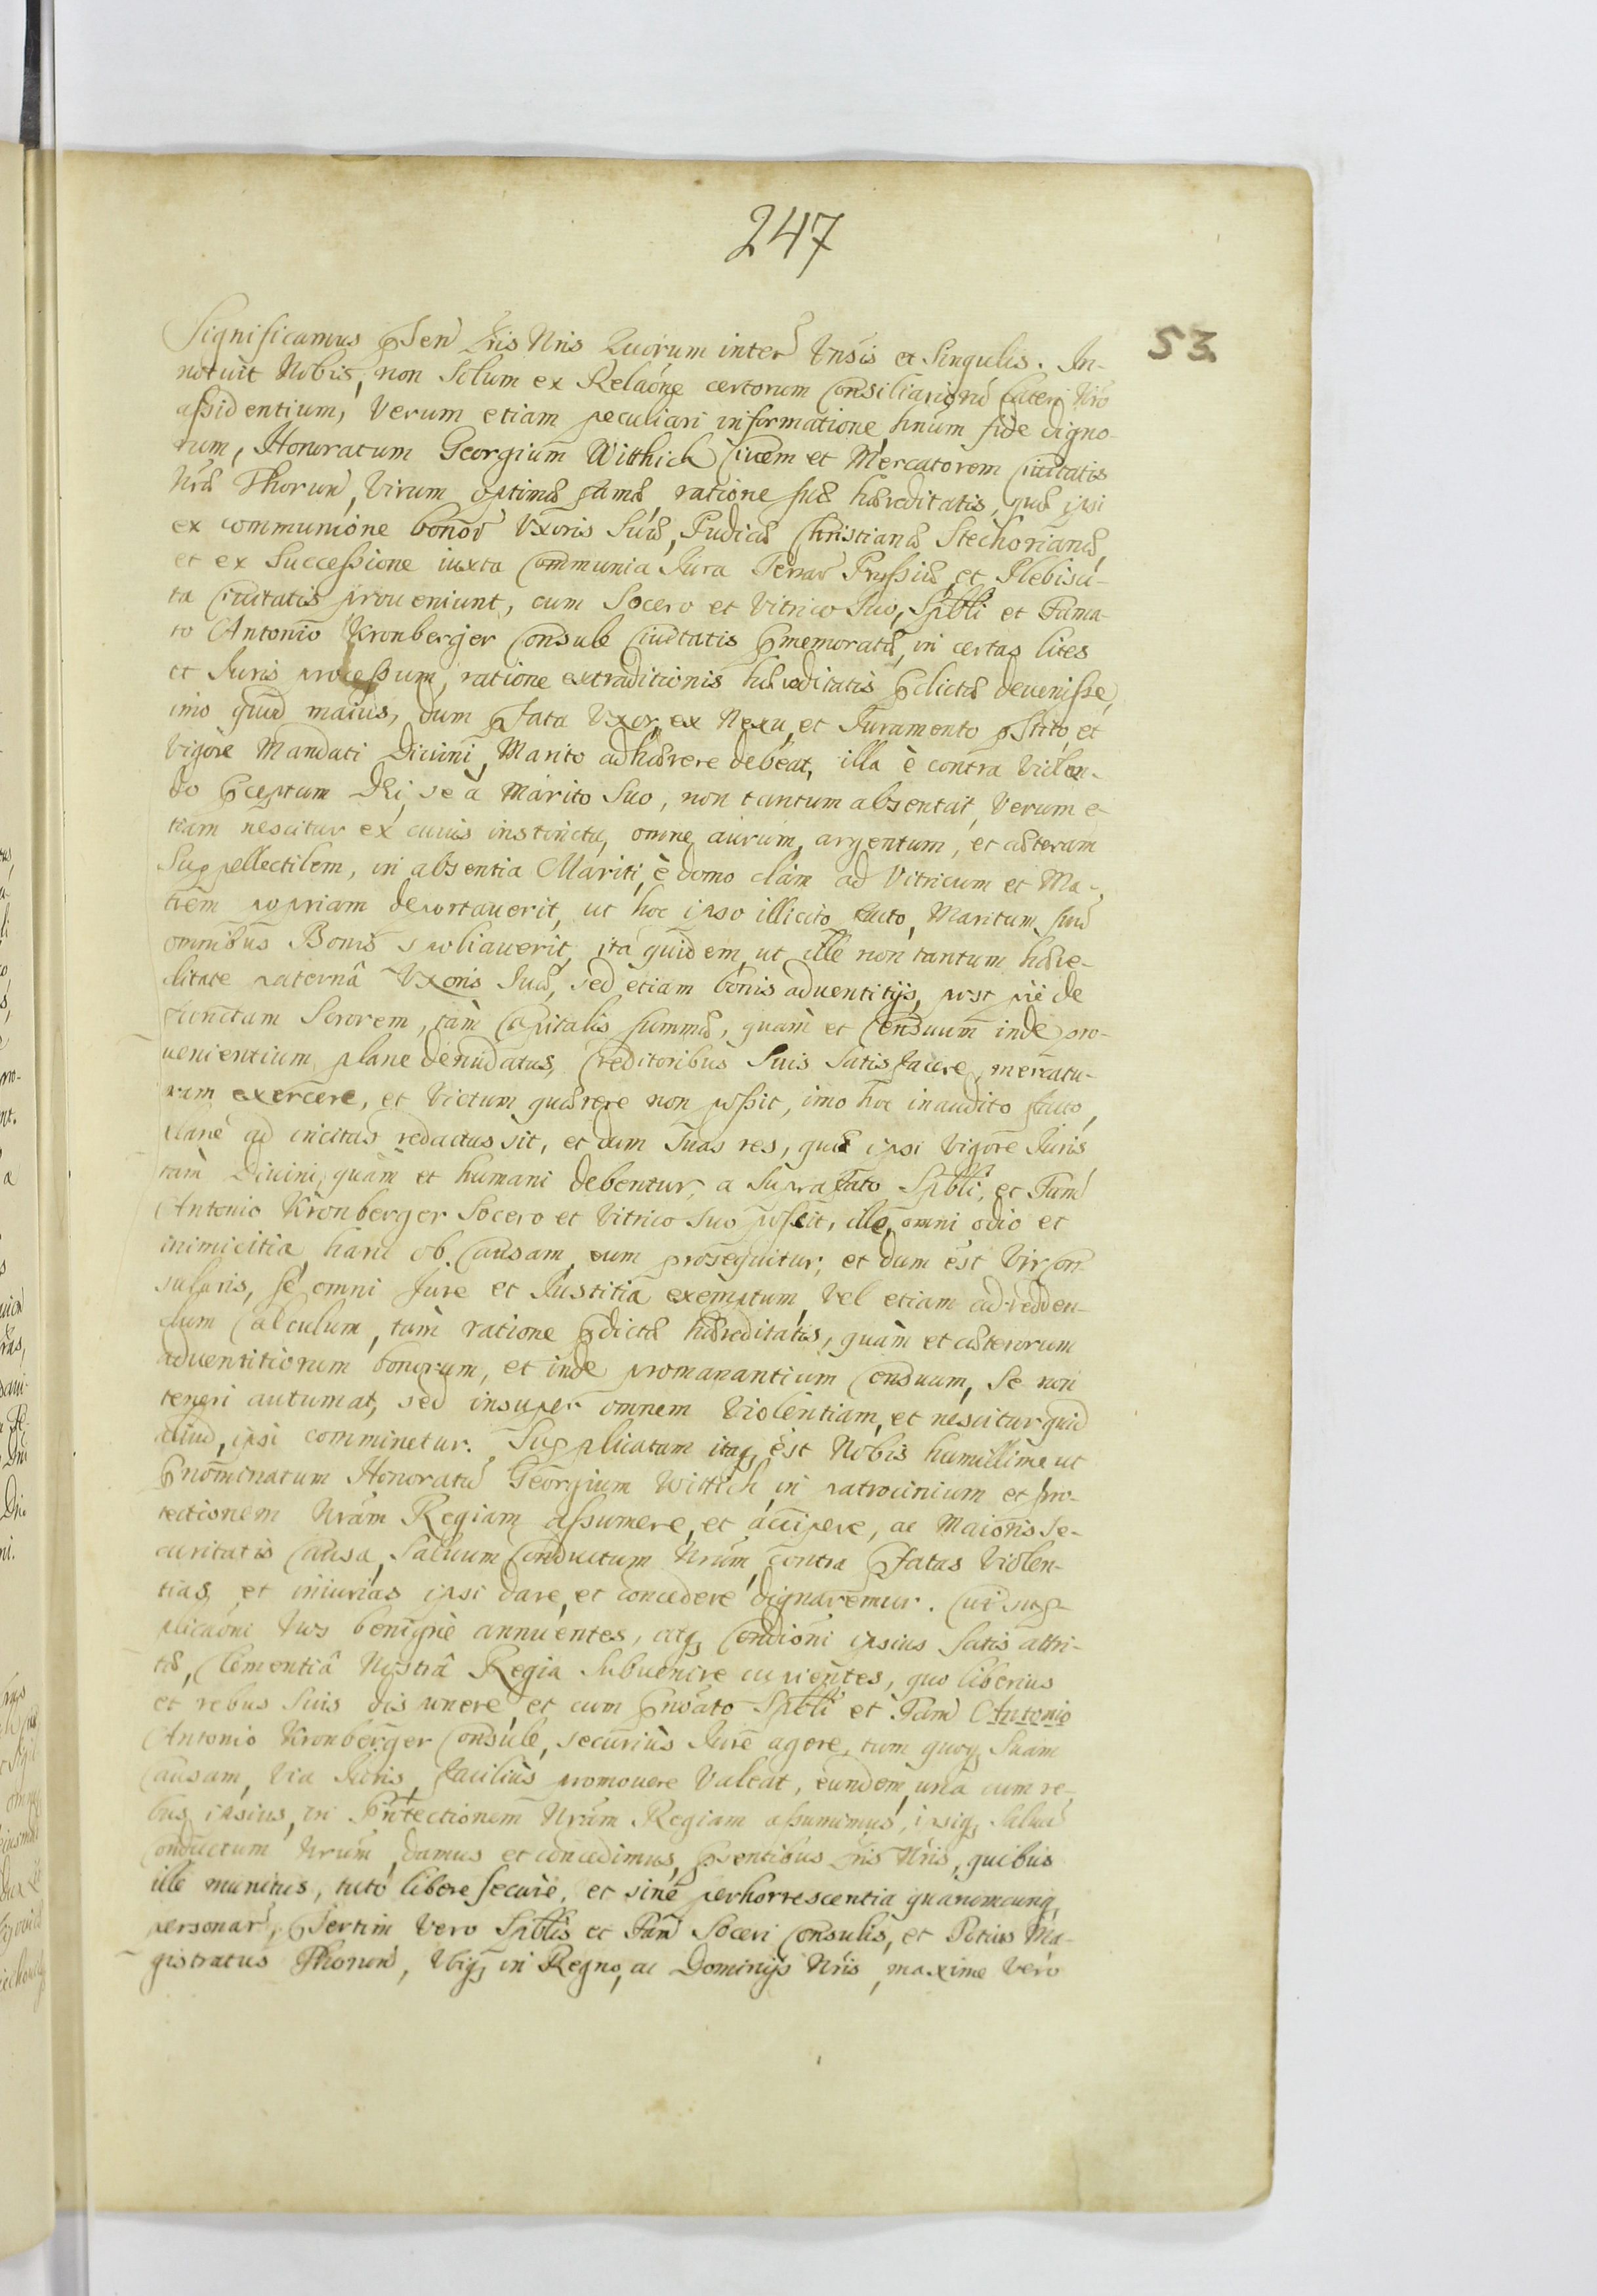 247
53
Significamus Psen Lris Nris Quorum inter Vnsis et Singulis. In-
notuit Nobis, non solum ex Relaone certorum Consiliariorũ lateri Nro
assidentium, Verum etiam peculiari informatione hnum fide digno-
rum, Honoratum Georgium Witthich Ciuem et Mercatorem Ciuitatis
Nræ Thorun, Virum optimæ famæ, ratione suæ hæreditatis, quæ ipsi
ex communione bonor Vxoris Suæ, Pudicæ Christianæ Stechorianæ,
et ex Successione iuxta Communia Jura Terrar Prussiæ et Plebisci-
ta Ciuitatis proueniunt, cum Socero et Vitrico Suo, Spbli et Fama-
to Antonio Kronberger Consule Ciuitatis Pmemoratæ, in certas lites
et Juris processum, ratione extraditionis hæreditatis Pdictæ deuenisse,
imo quid maius, dum Pfata Vxor, ex Nexu, et Juramento pstito, et
Vigore Mandati Diuini, Marito adhærere debeat, illa è contra Violan-
do Pceptum DEi, se à Marito Suo, non tantum absentat, Verum e-
tiam nescitur ex cuius instinctu, omne aurum, argentum, et cæteram
Suppellectilem, in absentia Mariti, è domo clam ad Vitricum et Ma-
trem propriam deportauerit, ut hoc ipso illicito facto, Maritum suũ
omnibus Bonis spoliauerit, ita quidem, ut ille non tantum hære-
ditate paternâ Vxoris Suæ, sed etiam bonis aduentitijs, post piè de
functam Sororem, tàm Capitalis summæ, quam et Censuum inde pro-
uenientium, plane denudatus, Creditoribus Suis Satisfacere, mercatu-
ram exercere, et Victum quærere non possit, imo hoc inaudito facto,
plane ad incitas redactus sit, et dum Suas res, quæ ipsi Vigore Juris
tam Diuini, quàm et humani debentur, a Suprafato Spbli, et Fam
Antonio Kronberger Socero et Vitrico Suo poscit, ille, omni odio et
inimicitia, hanc ob Causam, eum prosequitur; et dum est Vir Con-
sularis, se omni Jure et Justitia exemptum, Vel etiam ad redden-
dum Calculum, tàm ratione Pdictæ hæreditatis, quàm et cæterorum
aduentitiorum bonorum, et inde promanantium Censuum, se non
teneri autumat, sed insuper omnem Violentiam, et nescitur quid
aliud, ipsi comminetur. Supplicatum itaq est Nobis humillime ut
Pnominatum Honoratũ Georgium Wittich in patrocinium et pro-
tectionem Nram Regiam assumere, et accipere, ac Maioris Se-
curitatis Causa, Saluum Conductum Nrum, contra Pfatas Violen-
tias, et iniurias ipsi dare, et concedere dignaremur. Cui sup-
plicaoni Nos benignè annuentes, atq Condioni ipsius Satis attri-
tæ, Clementiâ Nostrâ Regia Subuenire cupientes, quo liberius
et rebus Suis disponere, et cum Pnoato Spbli et Fam Antonio
Antonio Kronberger Consule, securiùs Jure agere, tum quoq Suam
Causam, Via Juris, faciliùs promouere Valeat, eundem, una cum re-
bus ipsius, in Protectionem Nram Regiam assumimus, ipsiq Saluũ
Conductum Nrum, damus et concedimus, Psentibus Lris Nris, quibus
ille munitus, tutò libere secure, et sine perhorrescentia quarumcunq
personar, Psertim Vero Spblis et Fam Soceri Consulis, et Totius Ma-
gistratus Thorun, Vbiq in Regno, ac Dominijs Nris, maxime Vero